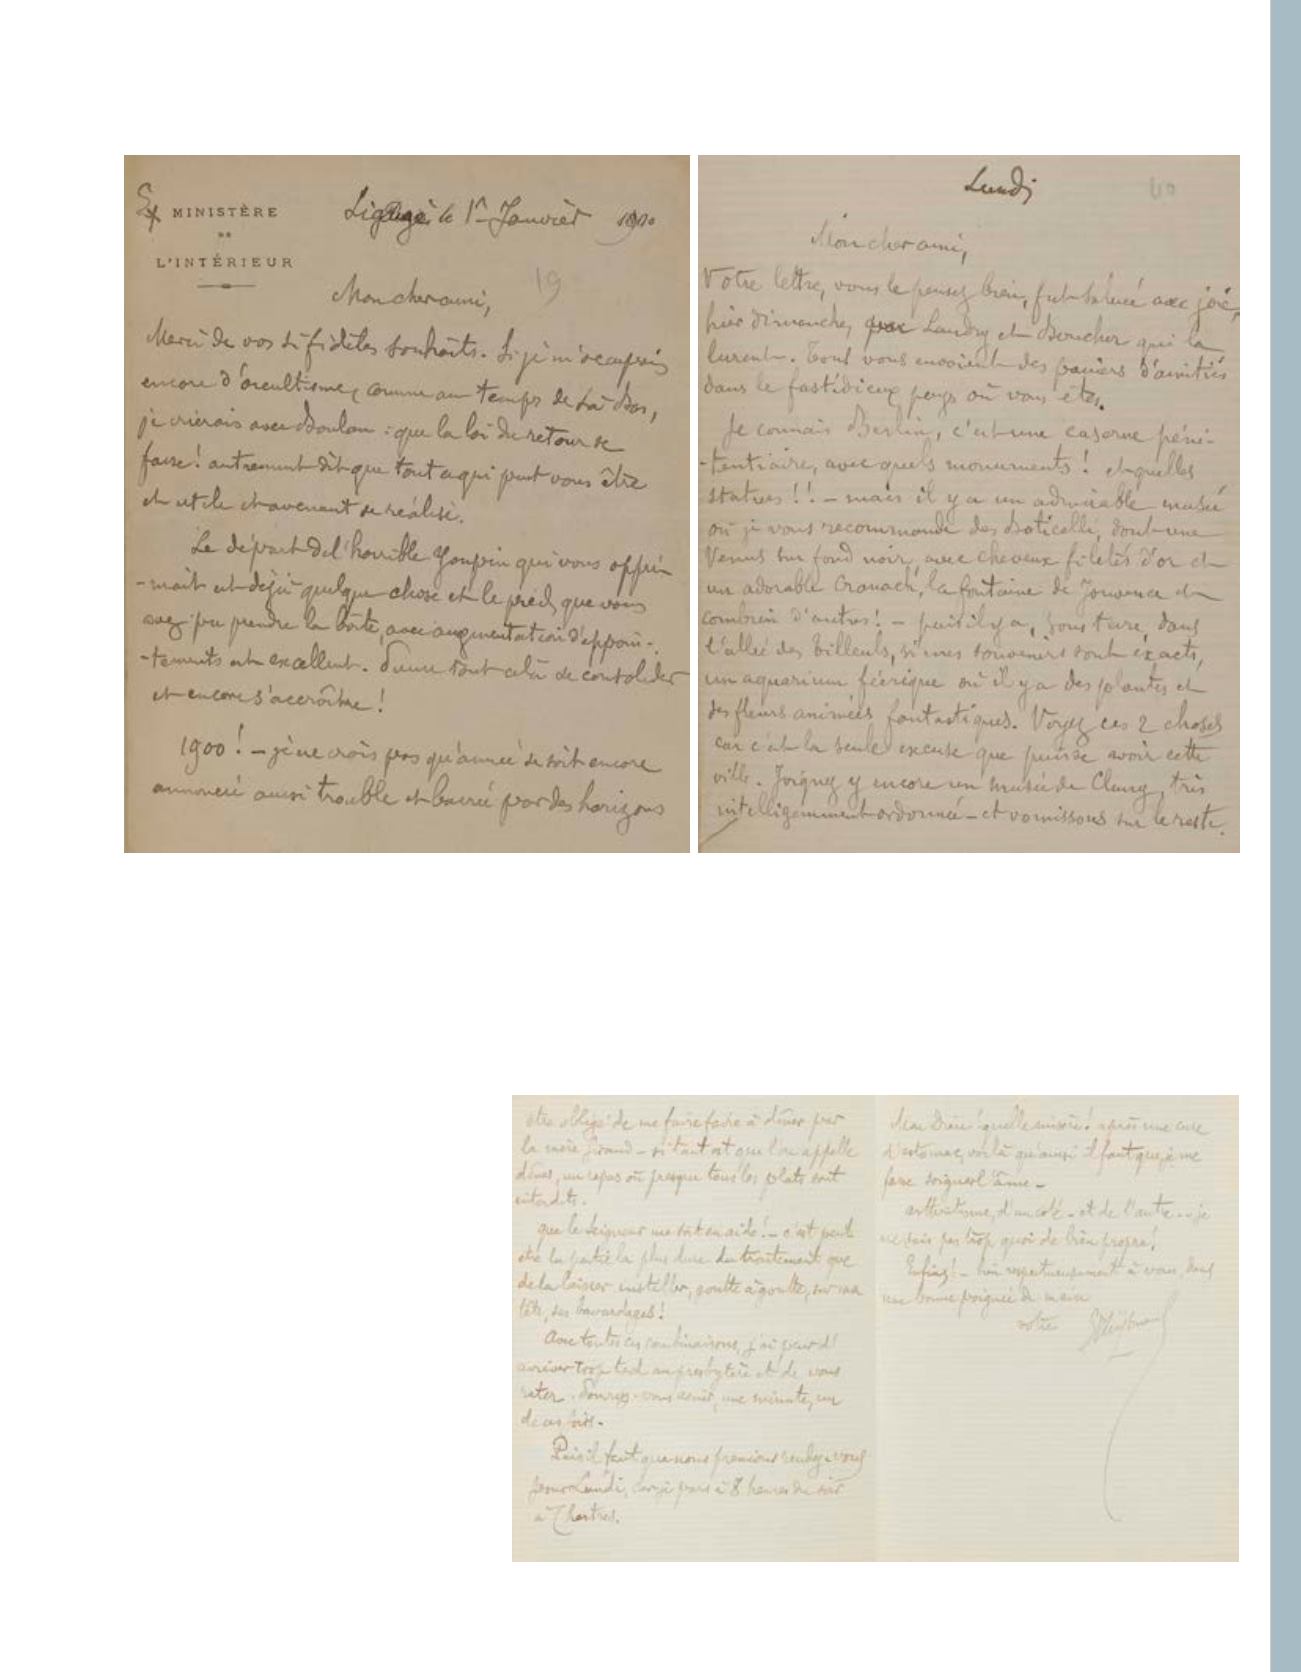 Ex MINISTÈRE
DE
L'INTÉRIEUR
Ligugé le 1er Janvier 1900
19
Mon cher ami,
Merci de vos si fidèles souhaits. Si je m'occupais
encore d'occultisme, comme au temps de Là-Bas,
je crierais avec Boulan : que la loi du retour se
fasse! autrement dit que tout ce qui peut vous être
et utile et avenant se réalise.
Le départ de l'horrible Youpin qui vous oppri-
-mait est déjà quelque chose et le pied que vous
avez pu prendre la boîte, avec augmentation d'appoin-
-tements est excellent. Puisse tout cela se consolider
et encore s'accroître!
1900! - je ne crois pas qu'année se soit encore
annoncée aussi trouble et barrée par des horizons
Lundi
40
Mon cher ami,
Votre lettre, vous le pensez bien, fut saluée avec joie,
hier dimanche, par Landry et Boucher qui la
lurent. Tous vous envoient des paniers d'amitiés
dans le fastidieux pays où vous êtes.
Je connais Berlin, c'est une caserne péni-
-tentiaire, avec quels monuments! et quelles
statues!! - mais il y a un admirable musée
où je vous recommande des Boticelli, dont une
Venus sur fond noir, avec cheveux filetés d'or et
un adorable Cranach, la fontaine de Jouvence et
combien d'autres! - puis il y a, sous terre, dans
l'allée des Tilleuls, si mes souvenirs sont exacts,
un aquarium féerique où il y a des plantes et
des fleurs animées fantastiques. Voyez ces 2 choses
car c'est la seule excuse que puisse avoir cette
ville. Joignez y encore un musée de Cluny, très
intelligemment ordonné - et vomissons sur le reste.
être obligé de me faire faire à dîner par
la mère Giraud - si tant est que l'on appelle
dîner, un repas où presque tous les plats sont
interdits.
que le Seigneur me soit en aide! - c'est peut
etre la partie la plus dure du traitement que
de la laisser instiller, goutte à goutte, sur ma
tête, ses bavardages!
Avec toutes ces combinaisons, j'ai peur d'
arriver trop tard au presbytère et de vous
rater. Pourrez-vous venir, une minute, un
de ces soirs.
Puis il faut que nous prenions rendez-vous
pour Lundi, car je pars à 8 heures du soir
à Chartres.
Mon Dieu! quelle misère! après une cure
d'estomac, voilà qu'aussi il faut que je me
fasse soigner l'âme -
arthritisme, d'un coté - et de l'autre.. je
ne sais pas trop quoi de bien propre!
Enfin! - bien respectueusement à vous, dans
une bonne poignée de main
votre
GHuysmans